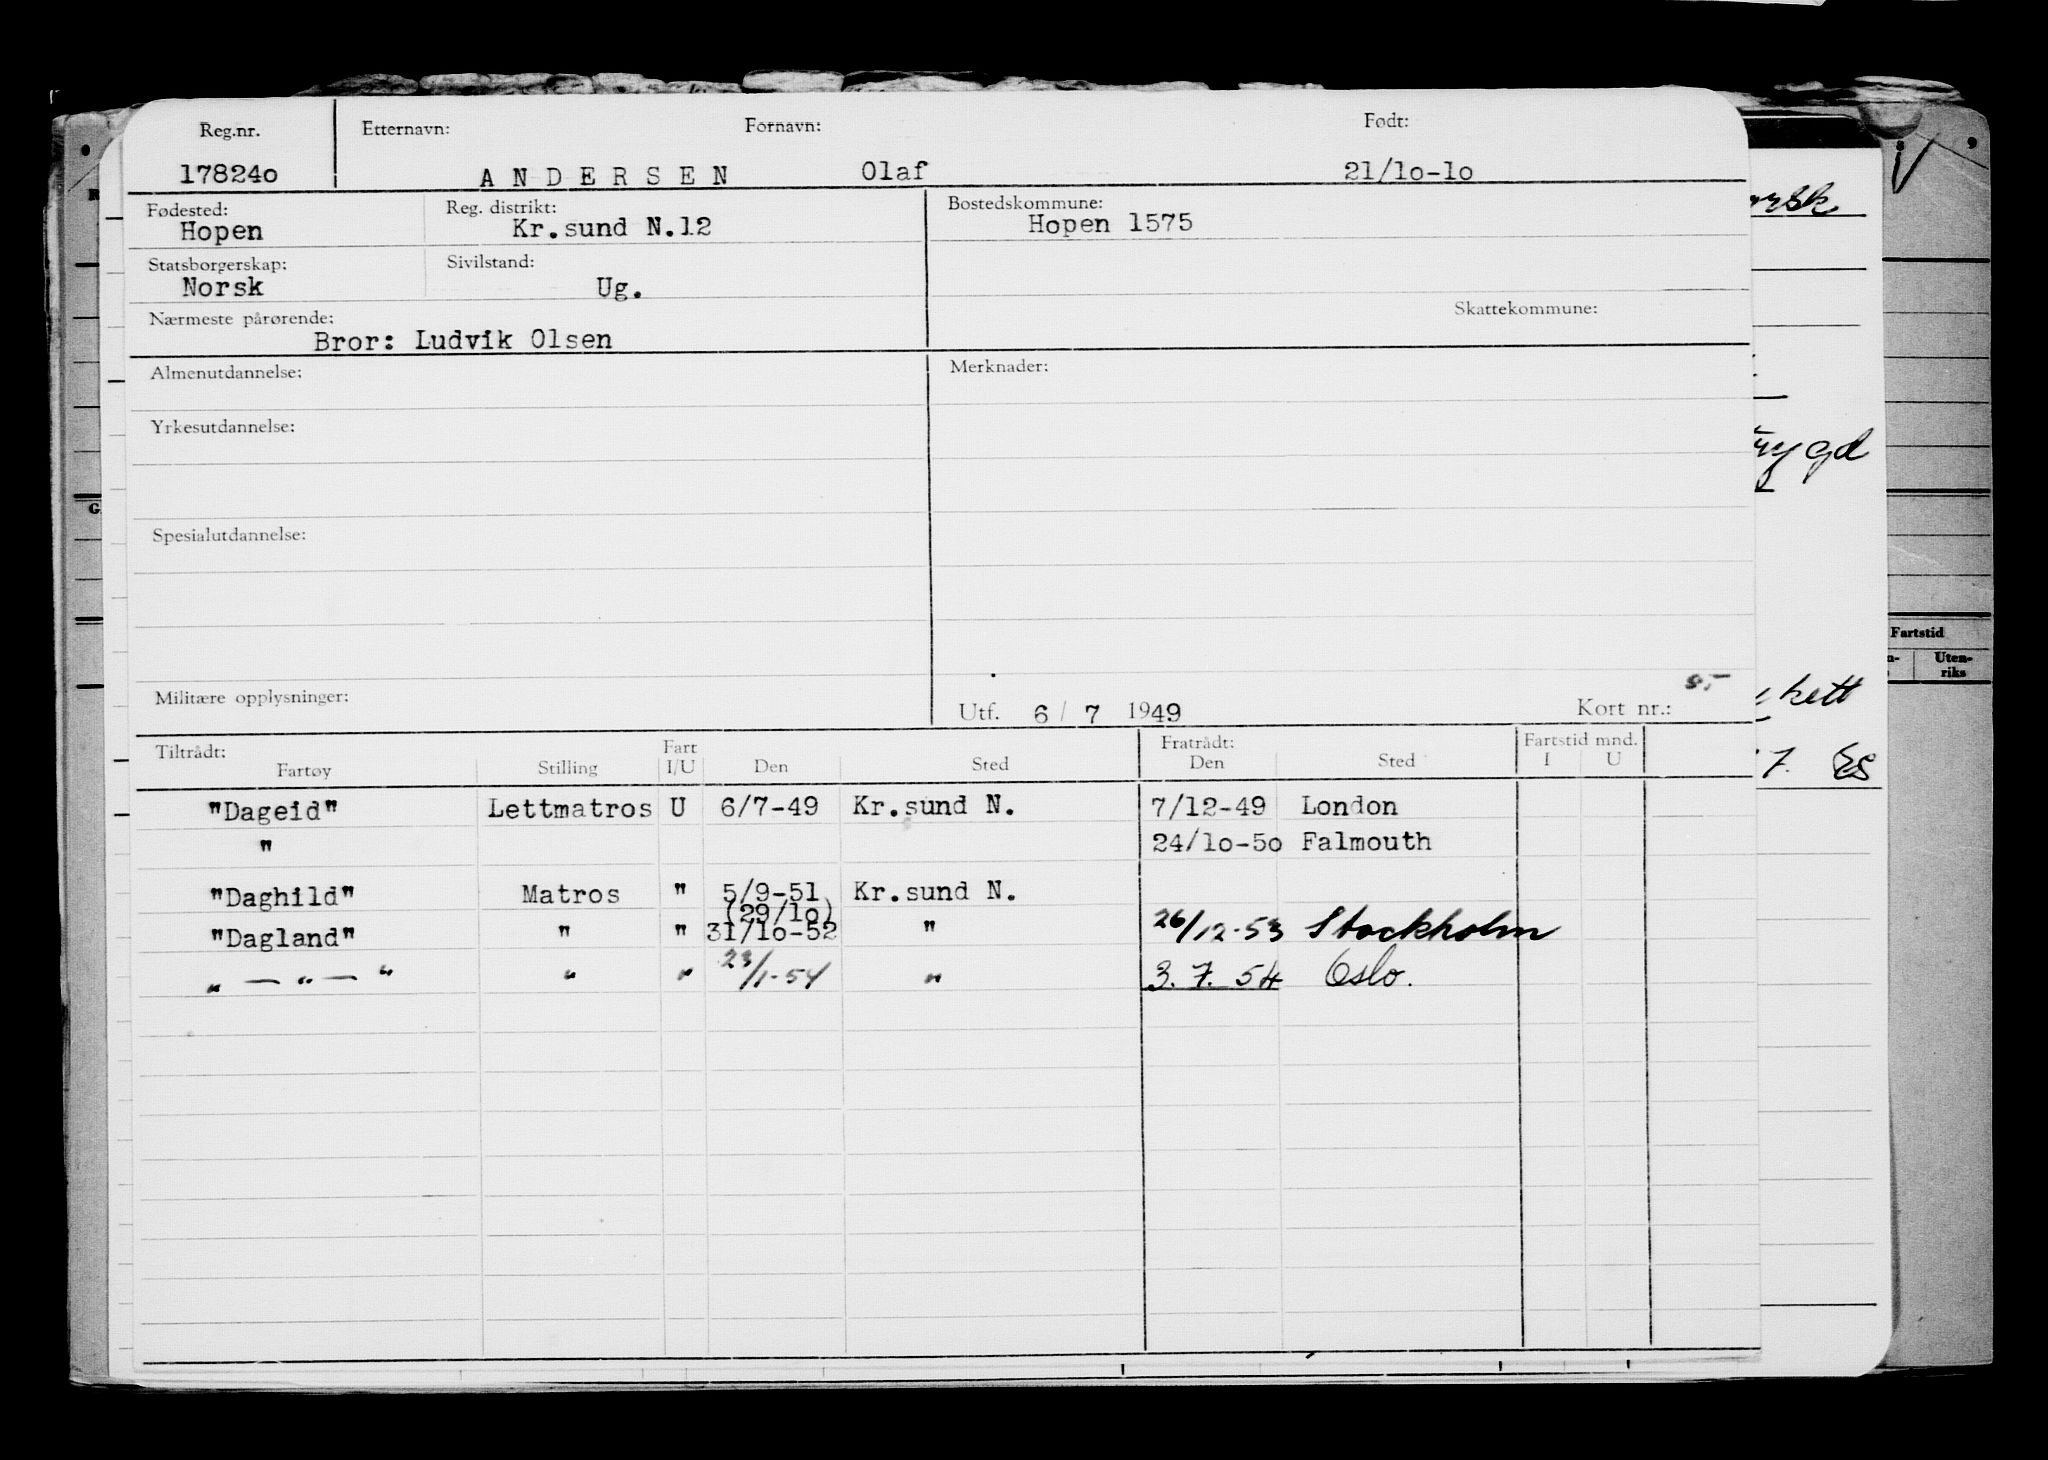 Reg.nr. Etternavn: Fornavn: Født:
17824o A N D E R S E N Olaf 21/1o-1o
Fødested: Reg. distrikt: Bostedskommune:
Hopen Kr.sund N.12 Hopen 1575
Statsborgerskap: Sivilstand:
Norsk Ug.
Nærmeste pårørende: Skattekommune:
Bror: Ludvik Olsen
Almenutdannelse: Merknader:
Yrkesutdannelse:
Spesialutdannelse:
Militære opplysninger: Utf. 6 / 7 1949 Kort nr.:
Tiltrådt: Fart Fratrådt: Fartstid mnd.
Fartøy Stilling I/U Den Sted Den Sted I U
"Dageid" Lettmatros U 6/7-49 Kr.sund N. 7/12-49 London
" 24/1o-5o Falmouth
"Daghild" Matros " 5/9-51 Kr.sund N.
(29/1o)
"Dagland" " " 31/1o-52 " 26/12-53 Stockholm
" — " — " " " 23/1-54 " 3. 7. 54 Oslo.
Fartstid
Uten-
riks